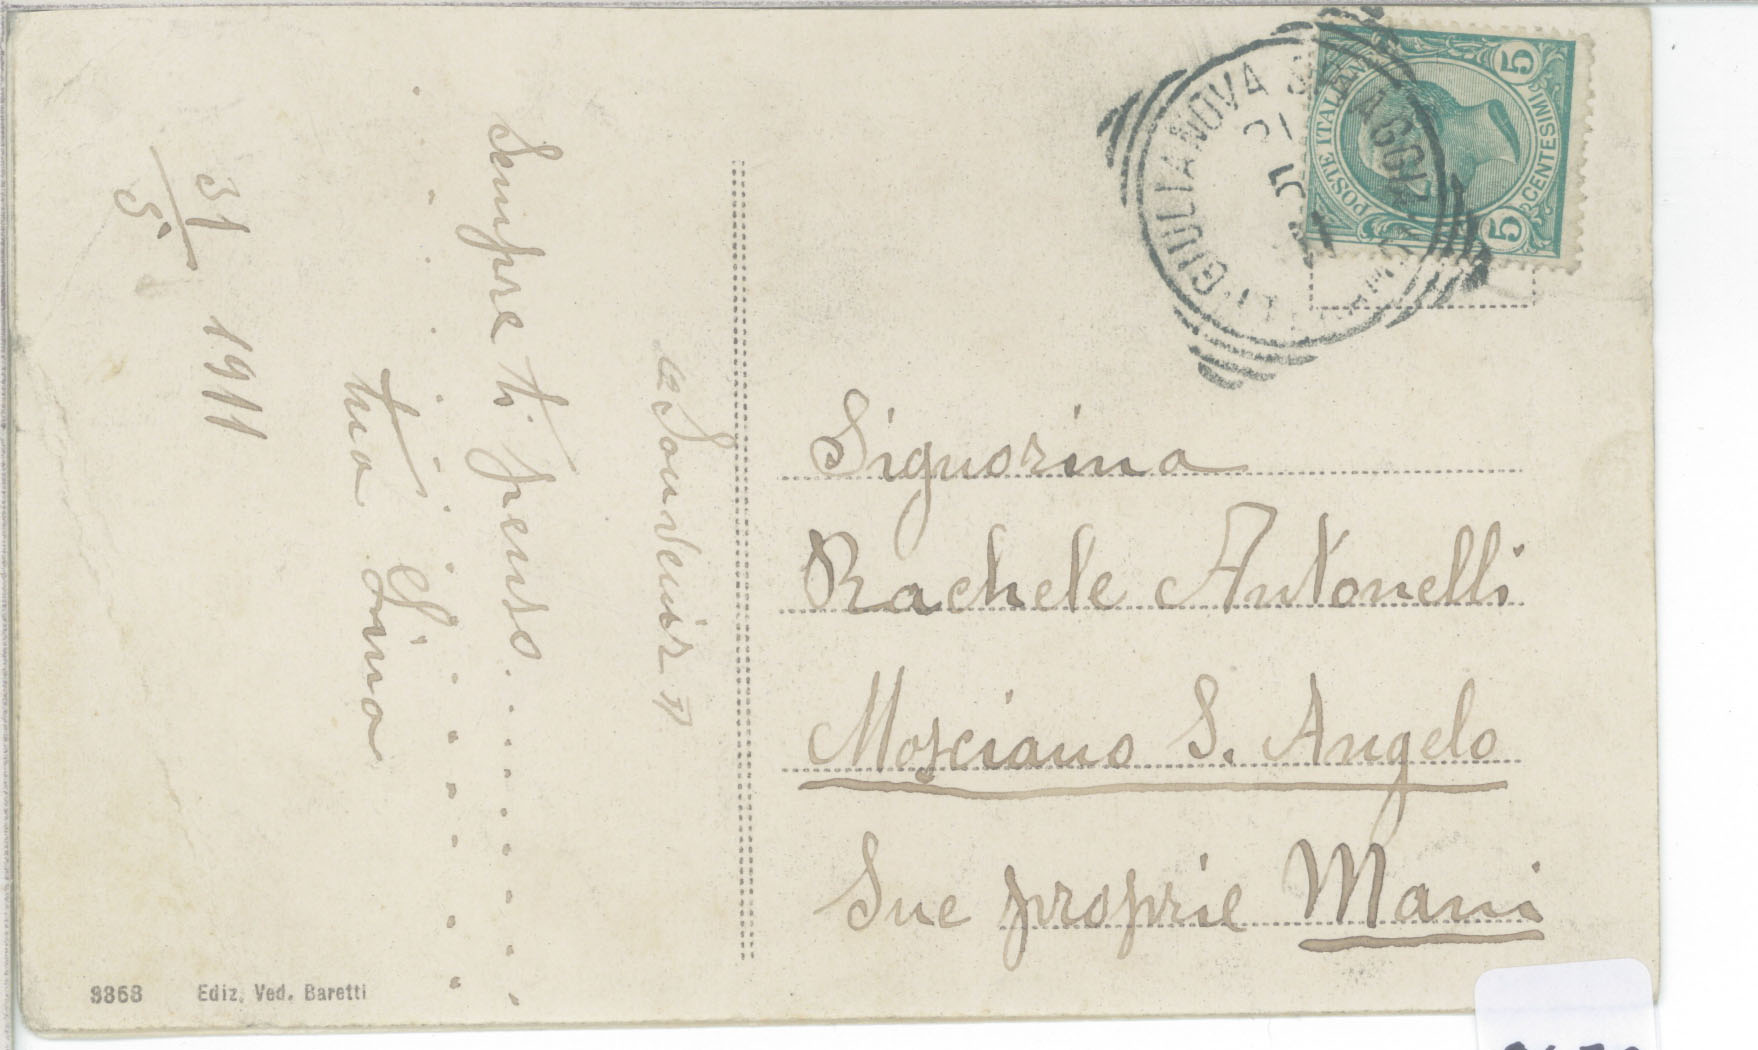 « Souvenir »
Sempre ti penso......
tua Gina
31/5 1911
Signorina
Rachele Antonelli
Mosciano S. Angelo
Sue proprie Mani
GIULIANOVA
POSTE ITALIANE
5 CENTESIMI 5
Ediz. Ved. Baretti